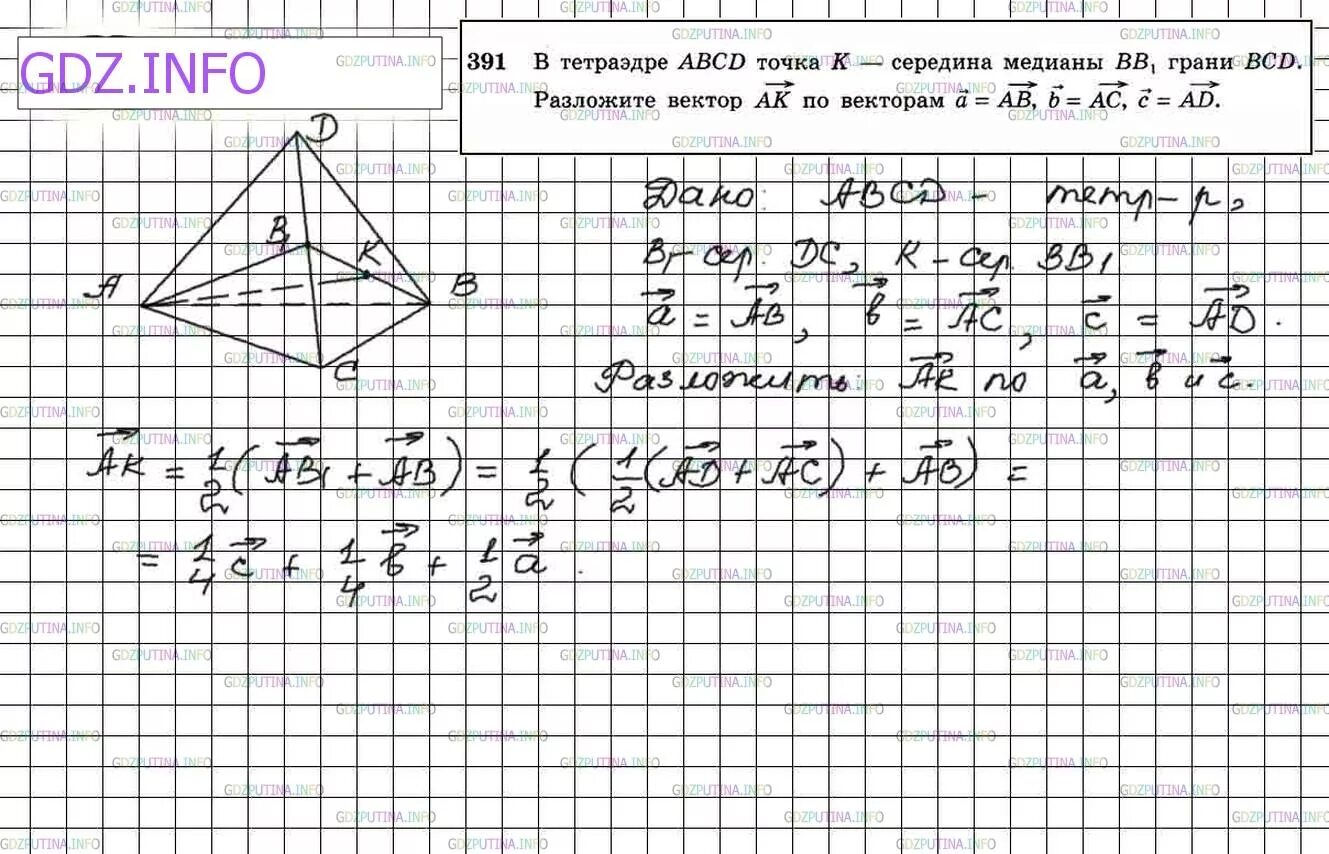 GDZ.INFO
391 В тетраэдре ABCD точка K — середина медианы BB₁ грани BCD.
Разложите вектор AK⃗ по векторам a⃗ = AB⃗, b⃗ = AC⃗, c⃗ = AD⃗.
D
B₁
K
A
B
C
Дано: ABCD - тетр-р,
B₁-сер. DC, K-сер. BB₁
a⃗ = AB⃗, в⃗ = AC⃗, c⃗ = AD⃗.
Разложить: AK⃗ по a⃗, в⃗ и c⃗.
AK⃗ = 1/2 (AB₁⃗ + AB⃗) = 1/2 (1/2 (AD⃗ + AC⃗) + AB⃗) =
= 1/4 c⃗ + 1/4 в⃗ + 1/2 a⃗.
GDZPUTINA.INFO